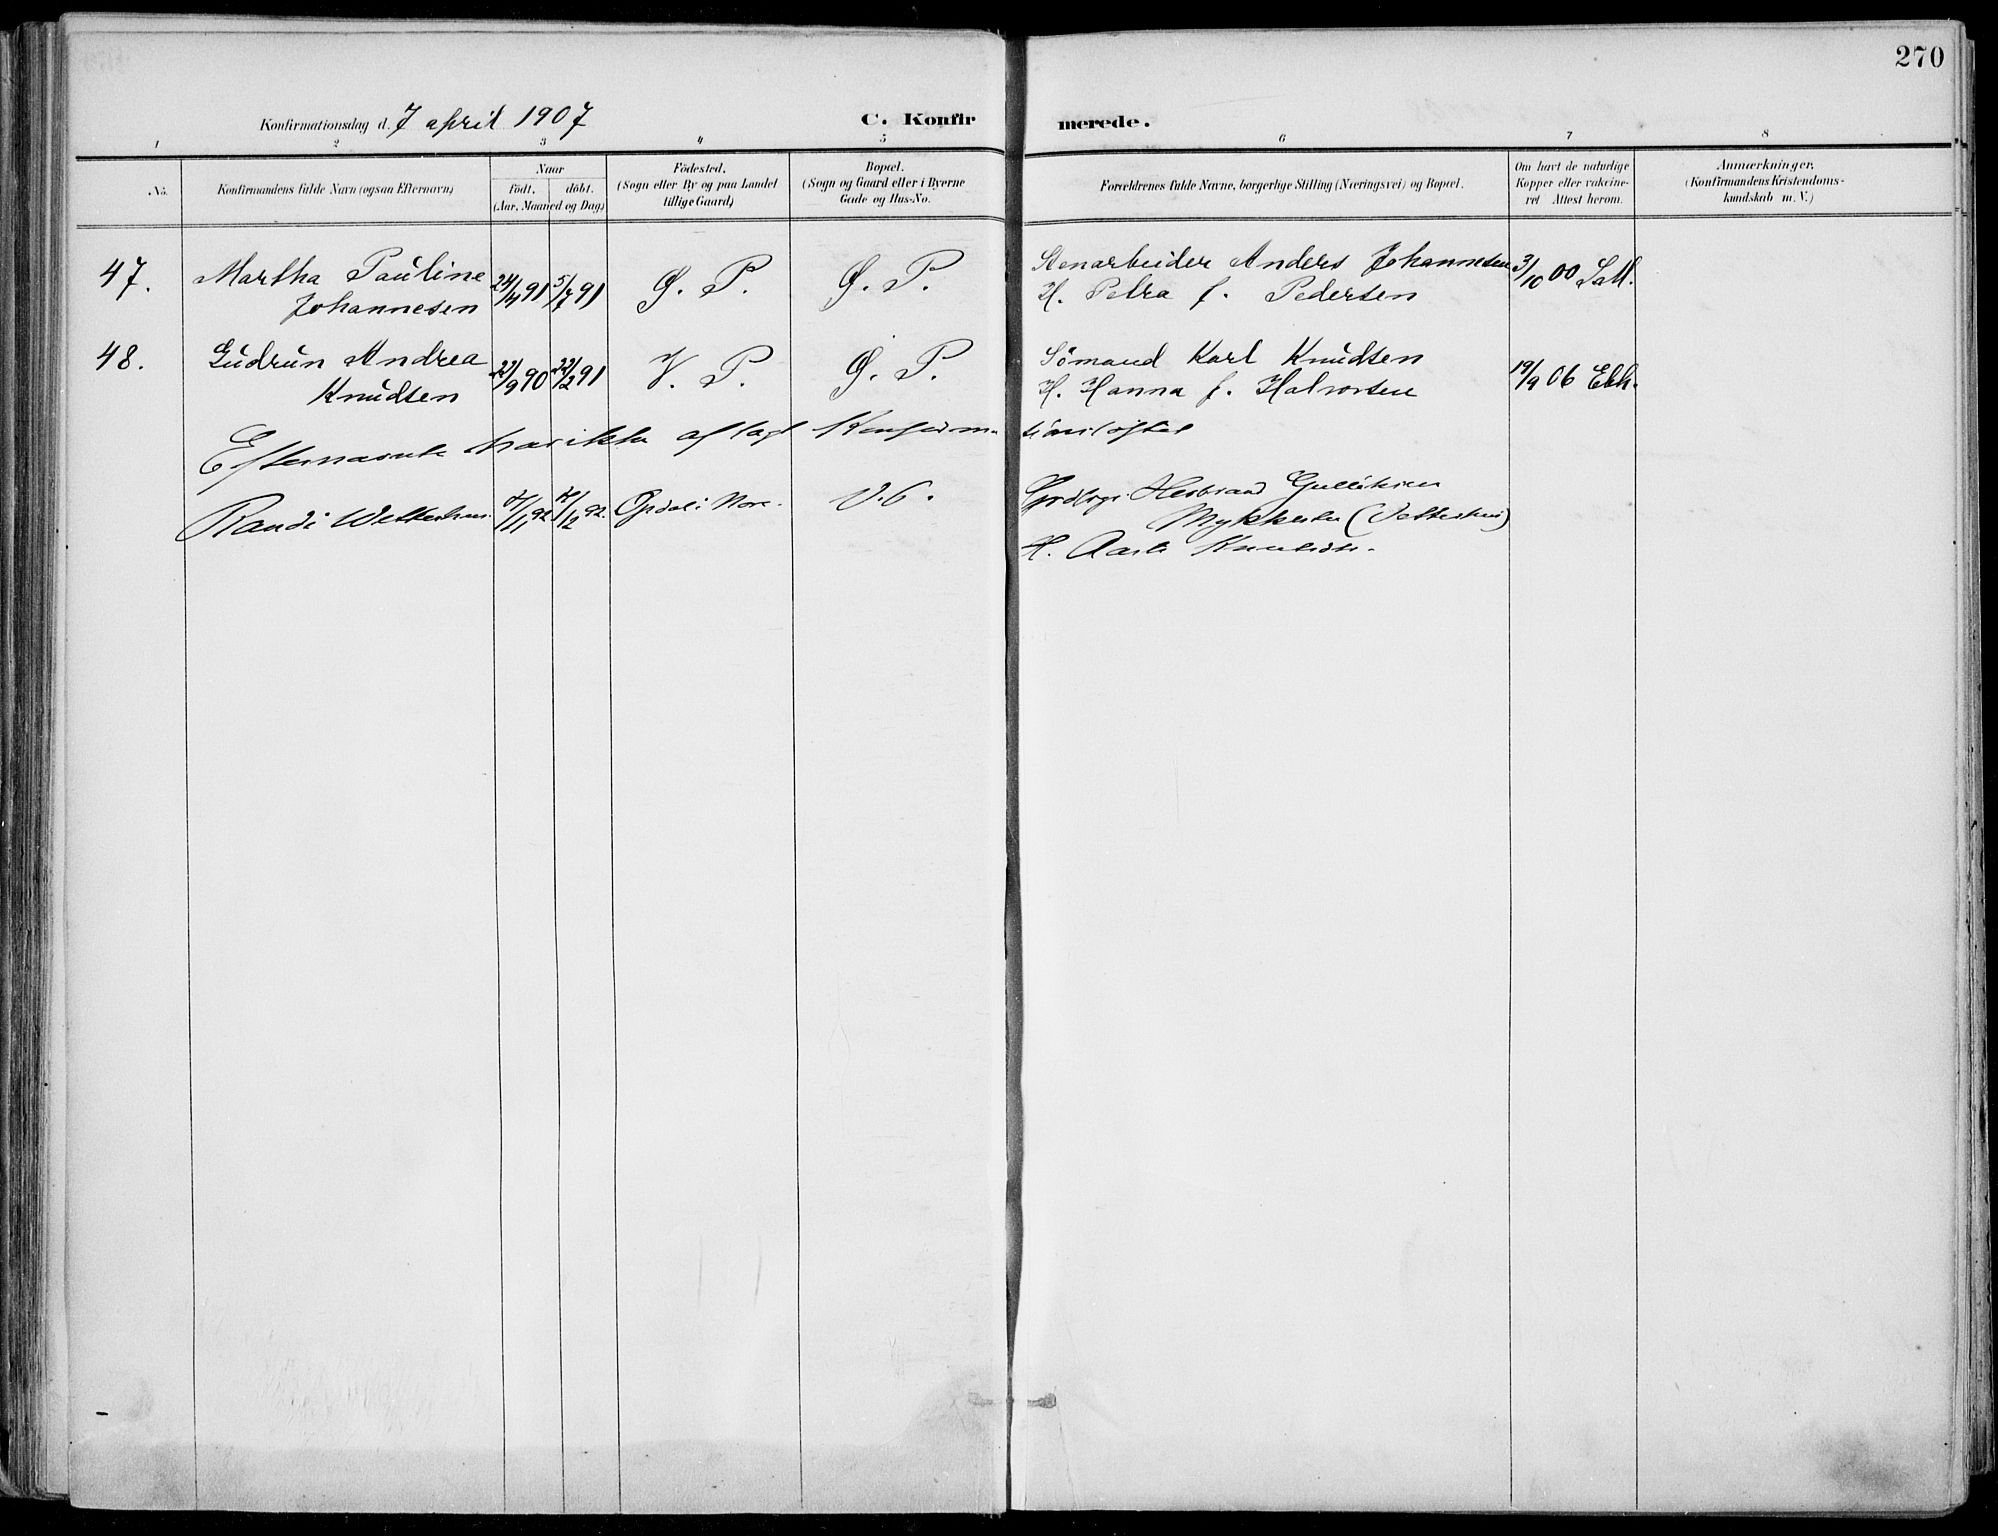 270
Konfirmationsdag d. 7 april 1907
C. Konfirmerede.
1 2 3 4 5 6 7 8
No.
Konfirmandens fulde Navn (ogsaa Efternavn)
Naar
født. døbt.
(Aar, Maaned og Dag)
Födested.
(Sogn eller By og paa Landet
tillige Gaard)
Bopæl.
(Sogn og Gaard eller i Byerne
Gade og Hus-No.
Forældrenes fulde Navne, borgerlige Stilling (Næringsvei) og Bopæl.
Om havt de naturlige
Kopper eller vakcine-
ret Attest herom.
Anmærkninger.
(Konfirmandens Kristendoms-
kundskab m. V.)
47. Martha Pauline 24/4 91 5/7 91 Ø. P. Ø. P. Stenarbeider Anders Johannesen 3/10 00
Johannesen H. Petra f. Pedersen
48. Gudrun Andrea 22/9 90 22/2 91 V. P. Ø. P. Sömand Karl Knudsen 19/9 06
Knudsen H. Hanna f. Halvorsen
Efternævnte har ikke aflagt Konfirma-
tionsløftet
Randi 92 92 Opdal i Nore. Gulliksen
H. Knudsdtr.